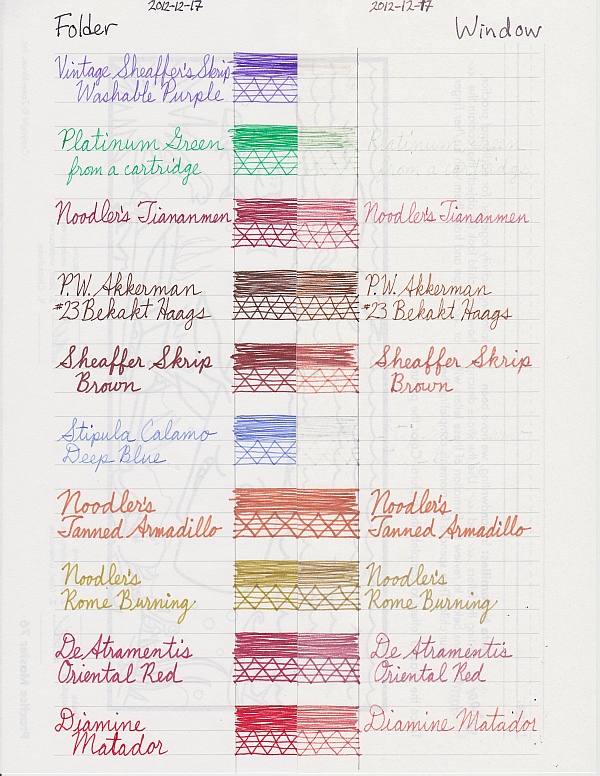 2012-12-17 2012-12-17
Folder Window
Vintage Sheaffer's Skrip
Washable Purple
Platinum Green Platinum Green
from a cartridge from a cartridge
Noodler's Tiananmen Noodler's Tiananmen
P.W. Akkerman P.W. Akkerman
#23 Bekakt Haags #23 Bekakt Haags
Sheaffer Skrip Sheaffer Skrip
Brown Brown
Stipula Calamo
Deep Blue
Noodler's Noodler's
Tanned Armadillo Tanned Armadillo
Noodler's Noodler's
Rome Burning Rome Burning
De Atramentis De Atramentis
Oriental Red Oriental Red
Diamine Diamine Matador
Matador